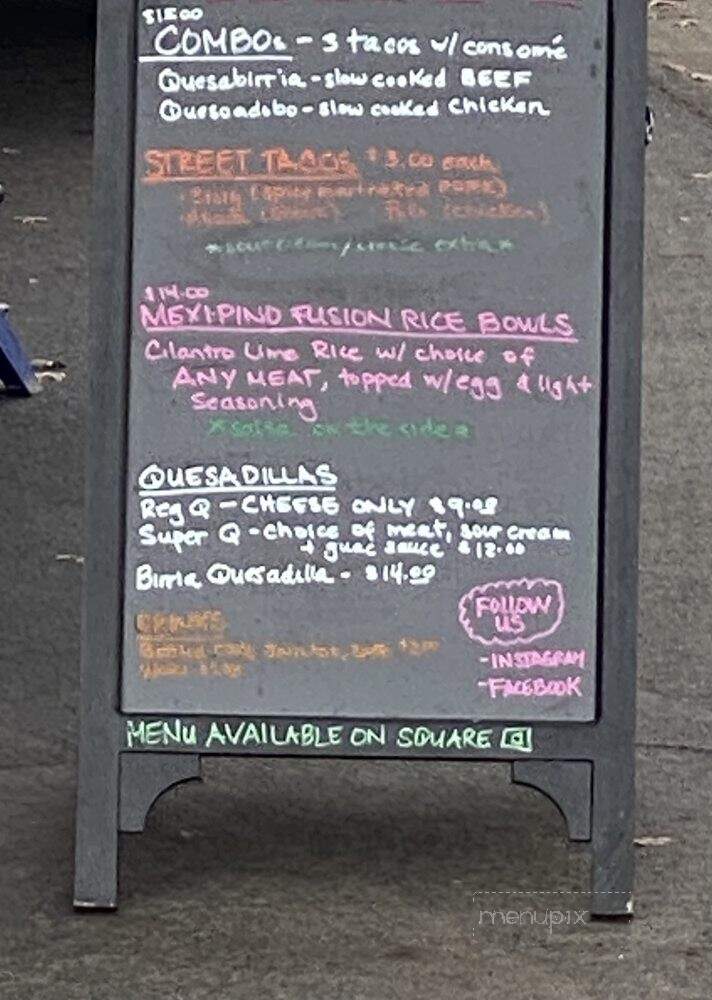 $15.00
COMBOs - 3 tacos w/ consomé
Quesabirria - slow cooked BEEF
Quesoadobo - slow cooked Chicken
STREET TACOS $3.00 each
(chicken)
extra*
$14.00
MEXIPINO FUSION RICE BOWLS
Cilantro Lime Rice w/ choice of
ANY MEAT, topped w/ egg & light
Seasoning
*Salsa on the side*
QUESADILLAS
Reg Q - CHEESE ONLY $9.00
Super Q - choice of meat, sour cream
+ guac sauce $12.00
Birria Quesadilla - $14.00
DRINKS
FOLLOW
US
-INSTAGRAM
-FACEBOOK
MENU AVAILABLE ON SQUARE
menupix